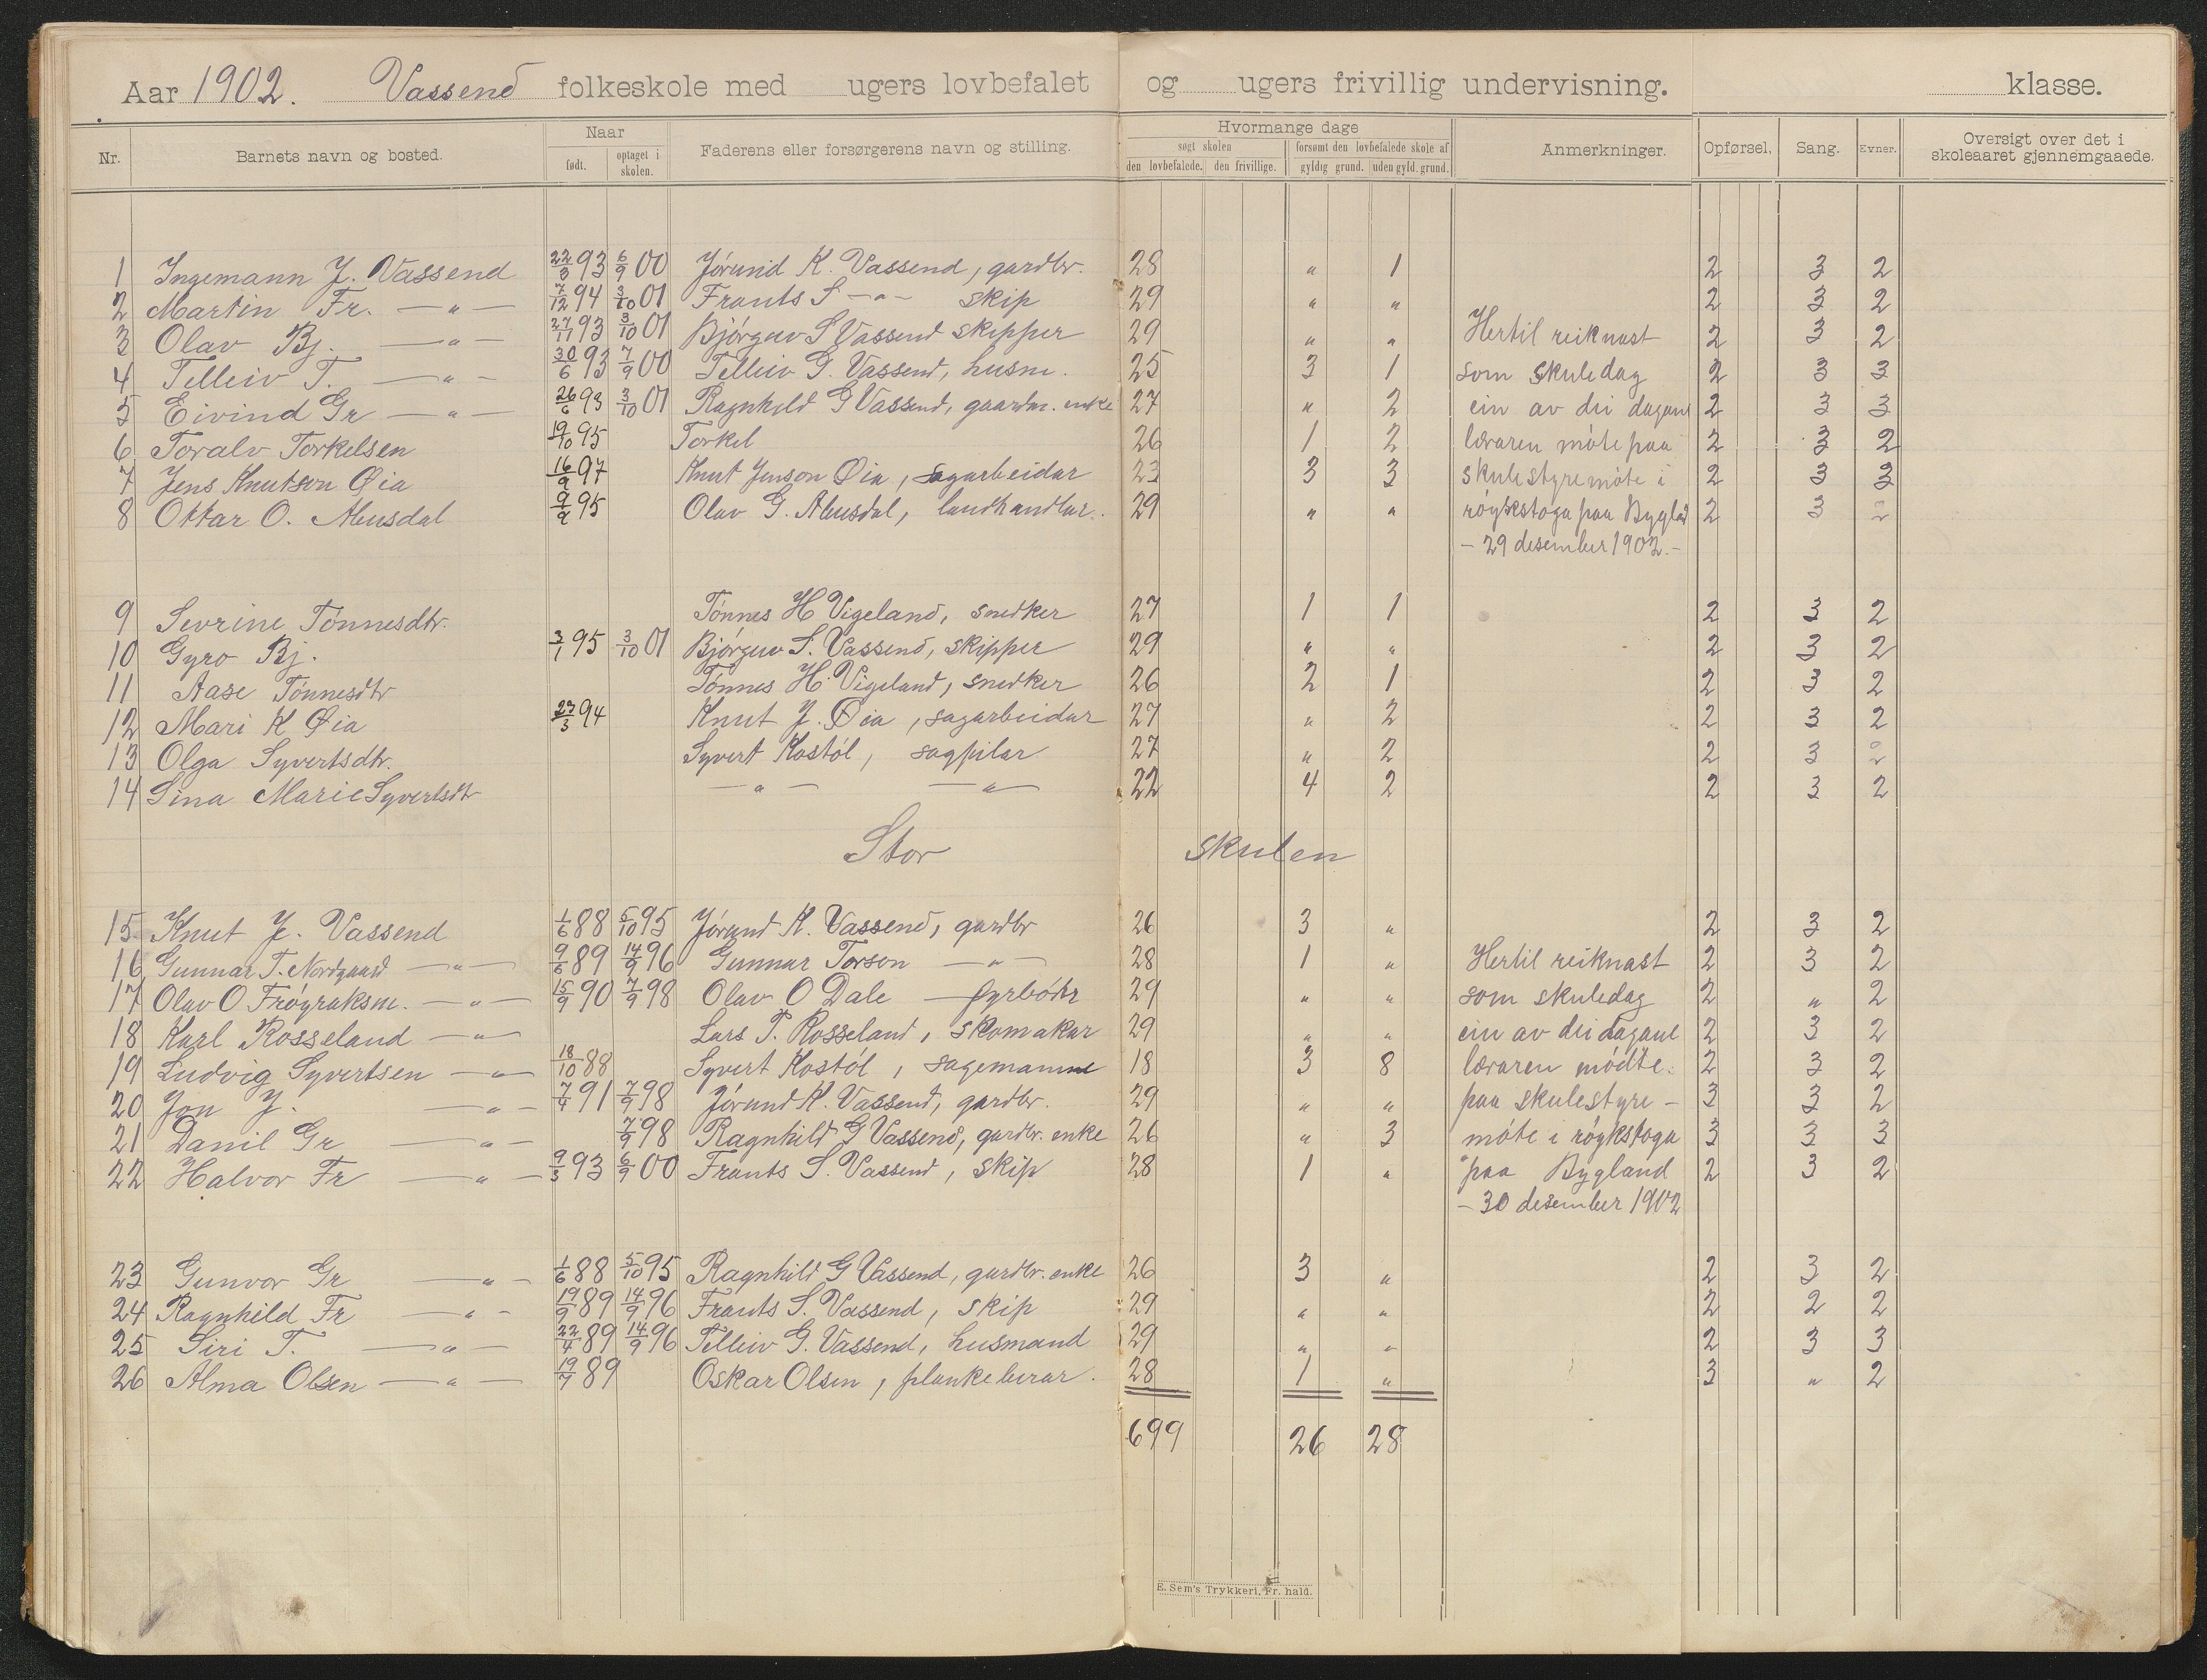 Aar 1902. Vassend folkeskole med ugers lovbefalet og ugers frivillig undervisning. klasse.
Nr. Barnets navn og bosted. Naar født. optaget i skolen. Faderens eller forsørgerens navn og stilling. Hvormange dage søgt skolen den lovbefalede. den frivillige. forsømt den lovbefalede skole af gyldig grund. uden gyld. grund. Anmerkninger. Opførsel. Sang. Evner. Oversigt over det i skoleaaret gjennemgaaede.
1 Ingemann J. Vassend 22/3 93 6/9 00 Jórund K. Vassend, gardbr. 28 " 1 2 3 2
2 Martin Fr. — " — 7/12 94 3/10 01 Frants S — " — skip 29 " " 2 3 2
3 Olav Bj. — " — 27/11 93 3/10 01 Bjórguv S Vassend skipper 29 " " Hertil reiknast 2 3 2
4 Telleiv T. — " — 30/6 93 7/9 00 Telleiv G. Vassend, husm. 25 3 1 som skuledag 2 3 3
5 Eivind Gr — " — 26/6 93 3/10 01 Ragnhild G Vassend, gaardm. enke 27 " 2 ein av dei dagane 2 3 3
6 Toralv Torkelsen 19/10 95 Torkel 26 1 2 læraren móte paa 2 3 2
7 Jens Knutson Øia 16/9 97 Knut Jenson Øia, sagarbeidar 23 3 3 skulestyremóte i 2 3 3
8 Ottar O. Abusdal 9/9 95 Olav G. Abusdal, landhandlar. 29 " " róykstoga paa Bygland 2 3 2
- 29 desember 1902. -
9 Sevrine Tónnesdtr. Tónnes H Vigeland, snedker 27 1 1 2 3 2
10 Gyro Bj. 3/1 95 3/10 01 Bjórguv S. Vassend, skipper 29 " " 2 3 2
11 Aase Tónnesdtr Tónnes H. Vigeland, snedker 26 2 1 2 3 2
12 Mari K Øia 23/3 94 Knut J. Øia, sagarbeidar 27 " 2 2 3 2
13 Olga Syvertsdtr. Syvert Kostól, sagfilar 27 " 2 2 3 2
14 Sina Marie Syvertsdtr — " — — " — 22 4 2 2 3 2
Stor skulen
15 Knut J. Vassend 1/6 88 5/10 95 Jórund K. Vassend, gardbr 26 3 " 2 3 2
16 Gunnar T. Nordgaard — " — 9/6 89 14/9 96 Gunnar Torson — " — 28 1 " Hertil reiknast 2 3 2
17 Olav O Fróyraksm. — " — 15/9 90 7/9 98 Olav O Dale — fyrbótr 29 " " som skuledag 2 " 2
18 Karl Rosseland — " — Lars T. Rosseland, skomakar 29 " " ein av dei dagane 2 3 2
19 Ludvig Syvertsen — " — 18/10 88 Syvert Kostól, sagemanne 18 3 8 læraren módte. 2 3 2
20 Jon J. — " — 7/4 91 7/9 98 Jórund K. Vassend, gardbr. 29 " " paa skulestyre - 3 3 2
21 Danil Gr — " — 7/9 98 Ragnhild G Vassend, gardbr. enke 26 " 3 móte i róykstoga 3 3 3
22 Halvor Fr — " — 9/3 93 6/9 00 Frants S. Vassend, skip 28 1 " paa Bygland 2 3 2
- 30 desember 1902
23 Gunvor Gr — " — 1/6 88 5/10 95 Ragnhild G Vassend, gardbr. enke 26 3 " 2 3 2
24 Ragnhild Fr — " — 19/9 89 14/9 96 Frants S. Vassend, skip 29 " " 2 2 2
25 Siri T. — " — 22/4 89 14/9 96 Telleiv G. Vassend, husmand 29 " " 2 3 3
26 Alma Olsen — " — 19/7 89 Oskar Olsen, plankeberar. 28 1 " 3 " 2
699 26 28
E. Sem's Trykkeri, Fr. hald.